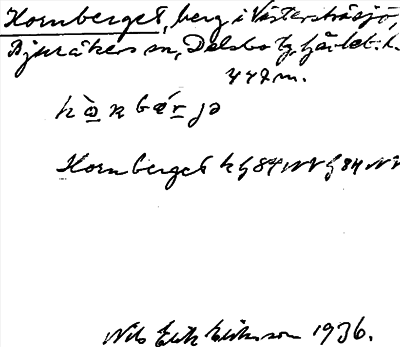 Hornberget, berg i Västerstråsjö,
Bjuråkers sn, Delsbo tg, Gävleb. l.
442 m.
hò̠ɳbær̠jə
Hornberget hg 84 NV g 84 NV
Nils Erik Eliasson 1936.